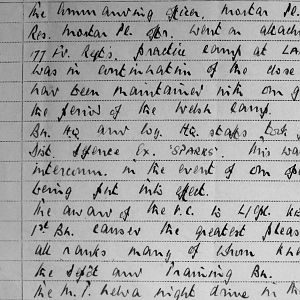 the Commanding Officer, Mortar Pl.
Res. Mortar Pl. Ofr. went on attach
177 Fd. Regts. practice camp at LA
was in continuation of the close
have been maintained with our g
the period of the Welsh Camp.
Bn. HQ and Coy. HQ. staffs took
Dist. Defence Ex. "SPARKS". This wa
intercomm. in the event of our
being put into effect.
The award of the V.C. to L/Cpl.
1st Bn. causes the greatest pleas
all ranks many of whom kn
the Depôt and Training Bn.
The M.T. held a night drive in th